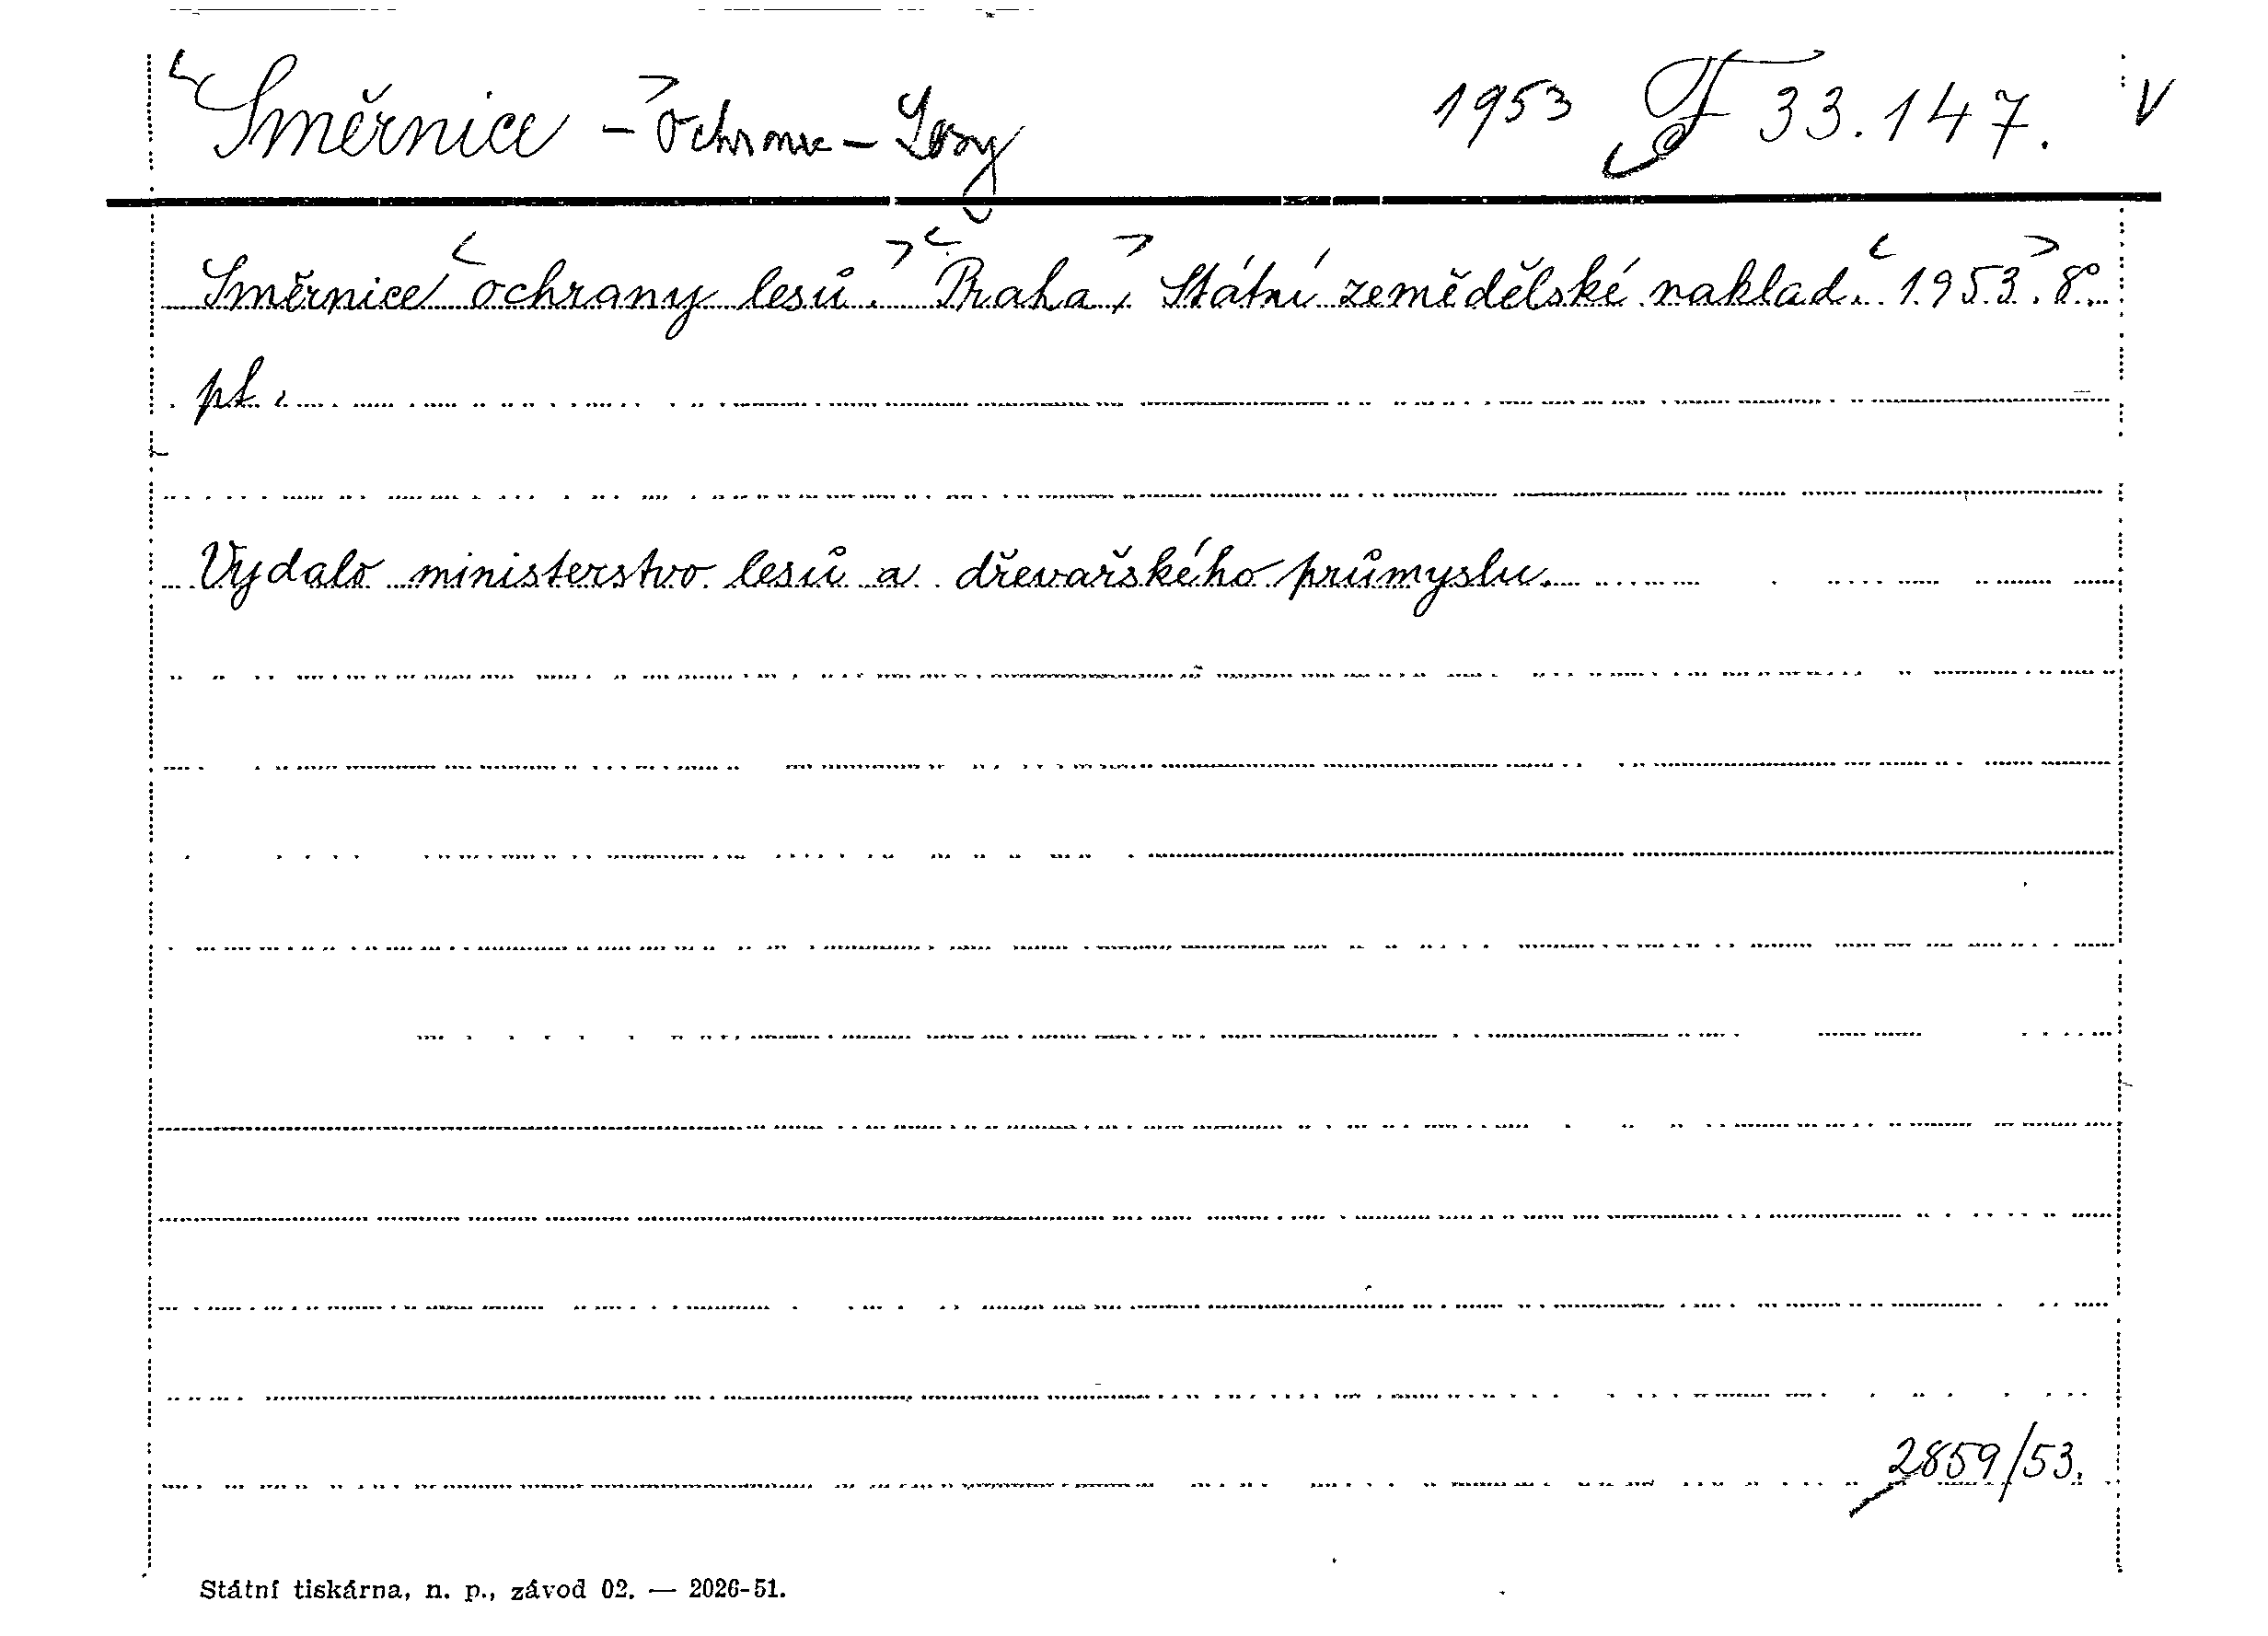 Směrnice – Ochrana – Lesy 1953 F 33.147. V
Směrnice ochrany lesů. Praha, Státní zemědělské naklad. 1953. 8°.
pt.
Vydalo ministerstvo lesů a dřevařského průmyslu.
2859/53.
Státní tiskárna, n. p., závod 02. — 2026-51.